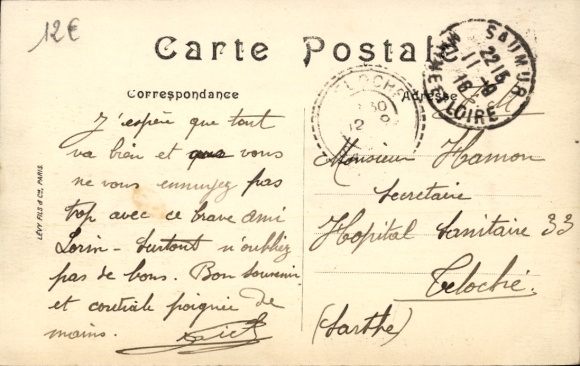 12€
Carte Postale
SAUMUR
MAINE-ET-LOIRE
22 15
TELOCHÉ
12
Correspondance
Adresse
LÉVY FILS & Cie, PARIS
J'espère que tout
va bien et que vous
ne vous ennuyez pas
trop avec ce brave ami
Lorin - Surtout n'oubliez
pas de bons. Bon souvenir
et cordiale poignée de
mains.
Monsieur Hamon
Secretaire
Hopital Sanitaire 33
Teloché.
(Sarthe)